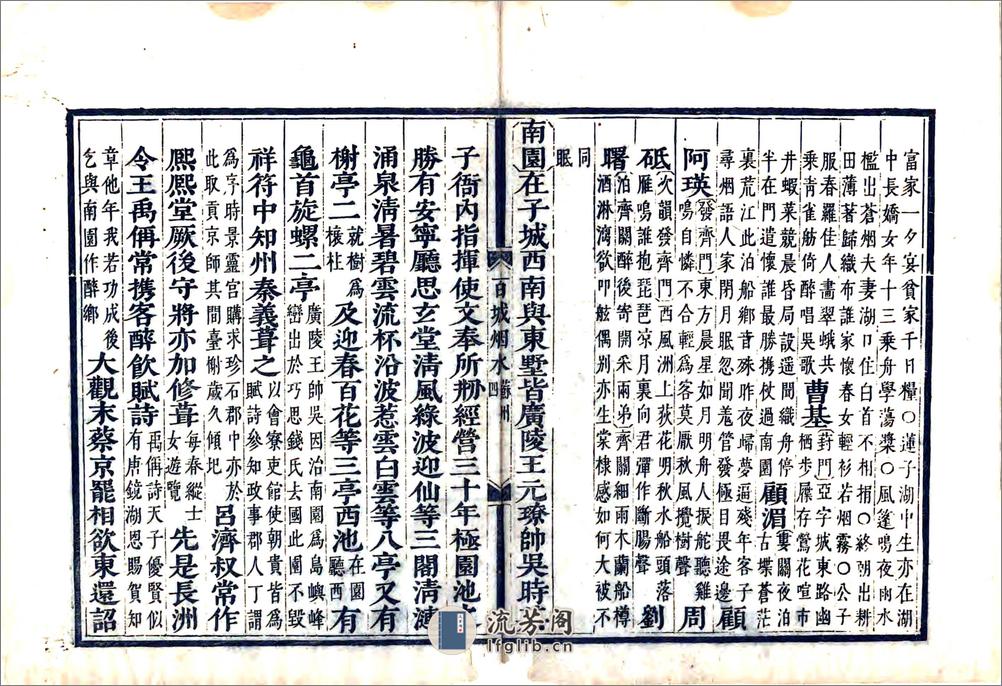 富家一夕宴貧家千日糧○蓮子湖中生亦在湖
中長嬌女年十三乘舟學蕩槳○風篷鳴夜雨水
檻出蒼烟夫妻湖口住白首不相捐○終朝出耕
田薄著歸織布誰家懷春女輕衫若烟霧○公子
服春羅佳人畫翠蛾共乘青雀舫倚醉唱吳歌 曹基 葑門亞字城東路幽棲步屧存鶯花喧市
井蝦菜競晨昏局設遥間織舟停半在門遣懷誰最勝攜杖過南園 顧湄 婁關夜泊古堞蒼茫
裏荒江此泊船鄉音殊昨夜歸夢逼殘年客子尋烟語人家閉月眠忽聞羗笛發極目思途邊 顧
阿瑛 發齊門東方晨星如月明舟人捩舵聽雞鳴自憐不合輕為客莫厭秋風攪樹聲 周
砥 次韻發齊門西風洲上荻花明秋水船頭落雁鳴誰抱琵琶凉月裏向君彈作斷腸聲 劉
曙 泊齊關醉後寄開采兩弟齊關細雨木蘭船樽酒淋漓欲叩舷偶别亦生棠棣感如何大被不
同眠
南園在子城西南與東墅皆廣陵王元璙帥吳時
百城烟水 蘇州 四
子衙內指揮使文奉所刱經營三十年極園池之
勝有安寧廳思玄堂清風綠波迎仙等三閣清漣
涌泉清暑碧雲流杯沿波惹雲白雲等八亭又有
榭亭二 就樹為榱柱 及迎春百花等三亭西池 在園廳西 有
龜首旋螺二亭 廣陵王帥吳因治南園為島嶼峰巒出於巧思錢氏去國此園不毀
祥符中知州秦羲葺之 以會寮吏館使朝貴皆為賦詩參知政事郡人丁謂
為序時景靈宮購求珍石郡中亦於此取貢京師其間臺榭歲久傾圯 呂濟叔常作
熙熙堂厥後守將亦加修葺 每春縱士女遊覽 先是長洲
令王禹偁常攜客醉飲賦詩 禹偁詩天子優賢似有唐鏡湖恩賜賀知
章他年我若功成後乞與南園作醉鄉 大觀末蔡京罷相欲東還詔
流芳阁
lfglib.cn